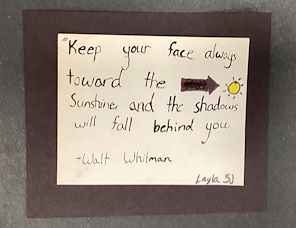 "Keep your face always
toward the
Sunshine, and the shadows
will fall behind you
-Walt Whitman
Layla SJ